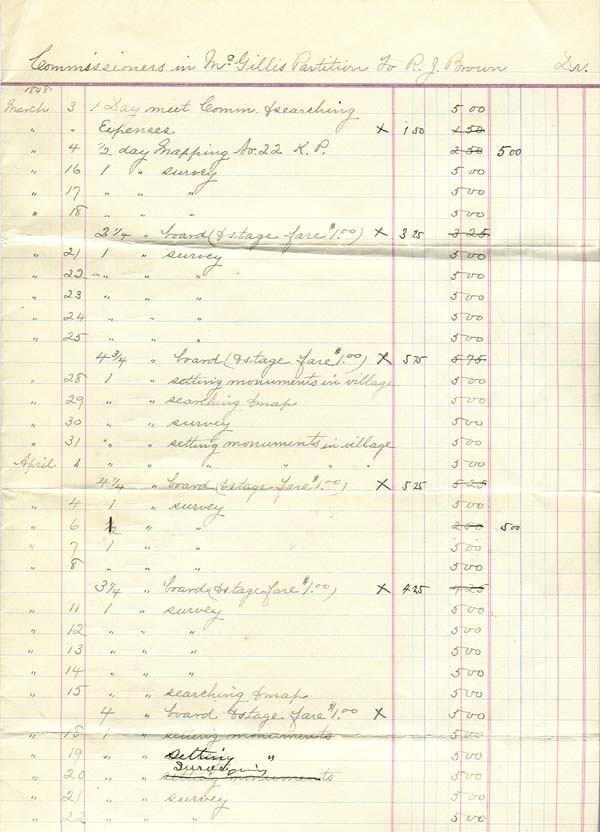 Commissioners in McGillis Partition To R. J. Brown Dr.
1898
March 3 1 Day meet Comm. & searching 5 00
" " Expenses X 1 50 1 50
" 4 1/2 day Mapping No. 22 K. P. 2 50 5 00
" 16 1 " survey 5 00
" 17 " " " 5 00
" 18 " " " 5 00
2 1/4 " board (& stage fare $1.00) X 3 25 3 25
" 21 1 " survey 5 00
" 22 " " " 5 00
" 23 " " " 5 00
" 24 " " " 5 00
" 25 " " " 5 00
4 3/4 " board (& stage fare $1.00) X 5 75 5 75
" 28 1 " setting monuments in village 5 00
" 29 " " searching & map 5 00
" 30 " " survey 5 00
" 31 " " setting monuments in village 5 00
April 1 " " " " " " 5 00
4 1/4 " board (& stage fare $1.00) X 5 25 5 25
" 4 1 " survey 5 00
" 6 1/2 " " 5 00
" 7 1 " " 5 00
" 8 " " " 5 00
3 1/4 " board (& stage fare $1.00) X 4 25 4 25
" 11 1 " survey 5 00
" 12 " " " 5 00
" 13 " " " 5 00
" 14 " " " 5 00
" 15 " " searching & map 5 00
4 " board & stage fare $1.00 X 5 00
" 18 1 " setting monuments 5 00
" 19 " " setting " 5 00
Surveying
" 20 " " setting monuments 5 00
" 21 " " survey 5 00
" 22 " " " 5 00